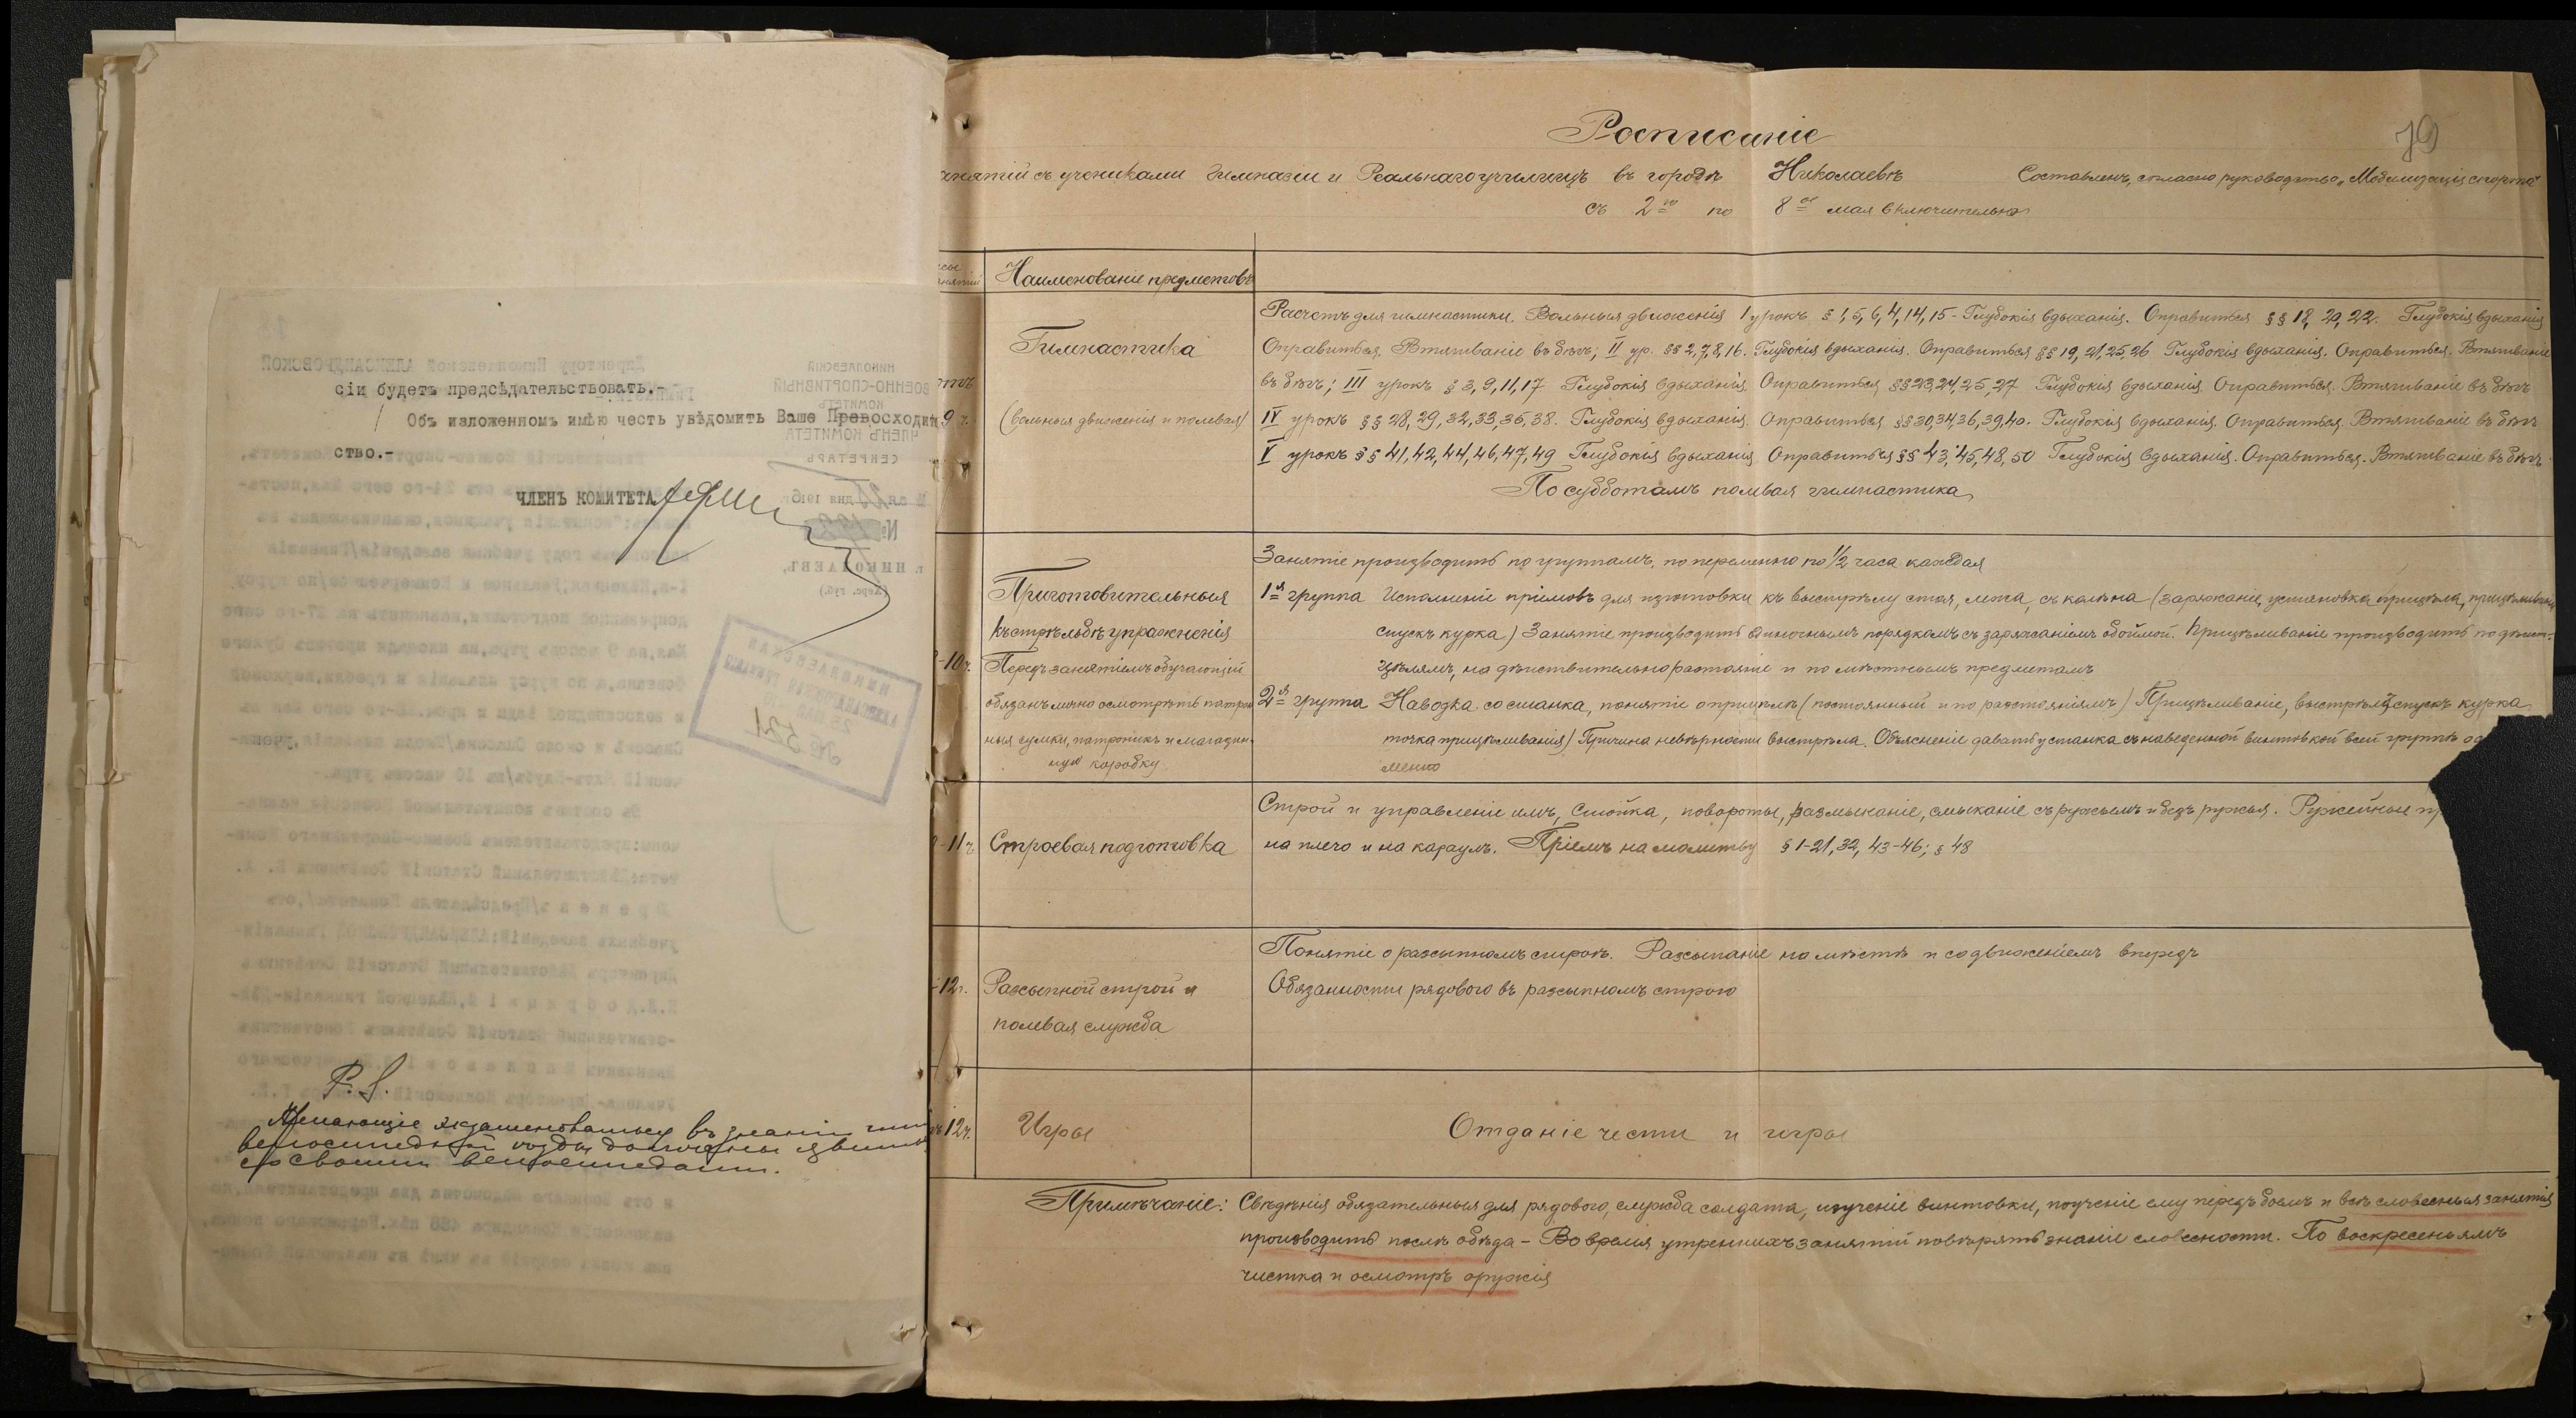 сіи будетъ предсѣдательствовать.-
Объ изложенномъ имѣю честь увѣдомить Ваше Превосходи
ство.-
ЧЛЕНЪ КОМИТЕТА
P. S.
Желающіе экзаменоваться въ знаніи
велосипедной ѣзды должны
со своими велосипедами.
79
Росписаніе
занятій съ учениками Гимназіи и Реальнаго училищъ въ городѣ Николаевѣ Составленъ, согласно руководству „Мобилизація спорта"
съ 2го по 8ое мая включительно
Наименованіе предметовъ
Гимнастика
9 ч.
(вольныя движенія и полевая)
Расчетъ для гимнастики. Вольныя движенія 1 урокъ § 1, 5, 6, 4, 14, 15 - Глубокія вдыханія. Оправиться §§ 18, 20, 22. Глубокія вдыханія
Оправиться. Втягиваніе въ бѣгъ; II ур. §§ 2, 7, 8, 16. Глубокія вдыханія. Оправиться §§ 19, 21, 25, 26 Глубокія вдыханія. Оправиться. Втягиваніе
въ бѣгъ; III урокъ § 3, 9, 11, 17 Глубокія вдыханія. Оправиться §§ 23, 24, 25, 27 Глубокія вдыханія. Оправиться. Втягиваніе въ бѣгъ
IV урокъ §§ 28, 29, 32, 33, 35, 38. Глубокія вдыханія. Оправиться §§ 30, 34, 36, 39, 40. Глубокія вдыханія. Оправиться. Втягиваніе въ бѣгъ
V урокъ §§ 41, 42, 44, 46, 47, 49 Глубокія вдыханія. Оправиться §§ 43, 45, 48, 50 Глубокія вдыханія. Оправиться. Втягиваніе въ бѣгъ.
По субботамъ полевая гимнастика
-10 ч.
Приготовительныя
къ стрѣльбѣ упражненія
Передъ занятіемъ обучающій
обязанъ лично осмотрѣть патрон
ныя сумки, патронникъ и магазин-
ную коробку
Занятіе производить по группамъ, по перемѣнно по 1/2 часа каждая
1я группа Исполненіе пріемовъ для изготовки къ выстрѣлу стоя, лежа, съ колѣна (заряжаніе, установка прицѣла, прицѣливаніе
спускъ курка) Занятіе производить одиночнымъ порядкомъ съ заряжаніемъ обоймой. Прицѣливаніе производить по дѣйст-
цѣлямъ, на дѣйствительно разстояніе и по мѣстнымъ предметамъ
2я группа Наводка со станка, понятіе о прицѣлѣ (постоянный и по разстояніямъ) Прицѣливаніе, выстрѣлъ, спускъ курка
точка прицѣливанія) Причина невѣрности выстрѣла. Объясненіе давать у станка съ наведенной винтовкой всей группѣ од
менно
-11 ч
Строевая подготовка
Строй и управленіе имъ, Стойка, повороты, размыканіе, смыканіе съ ружьемъ и безъ ружья. Ружейные пр
на плечо и на караулъ. Пріемъ на молитву § 1-21, 32, 43-46; § 48
-12 ч.
Разсыпной строй и
полевая служба
Понятіе о разсыпномъ строѣ. Разсыпаніе на мѣстѣ и со движеніемъ впередъ
Обязанности рядового въ разсыпномъ строю
12 ч.
Игры
Отданіе чести и игры
Примѣчаніе: Свѣдѣнія обязательныя для рядового, служба солдата, изученіе винтовки, поученіе ему передъ боемъ и всѣ словесныя занятія
производить послѣ обѣда - Во время утреннихъ занятій повѣрять знаніе словесности. По воскресеньямъ
чистка и осмотръ оружія